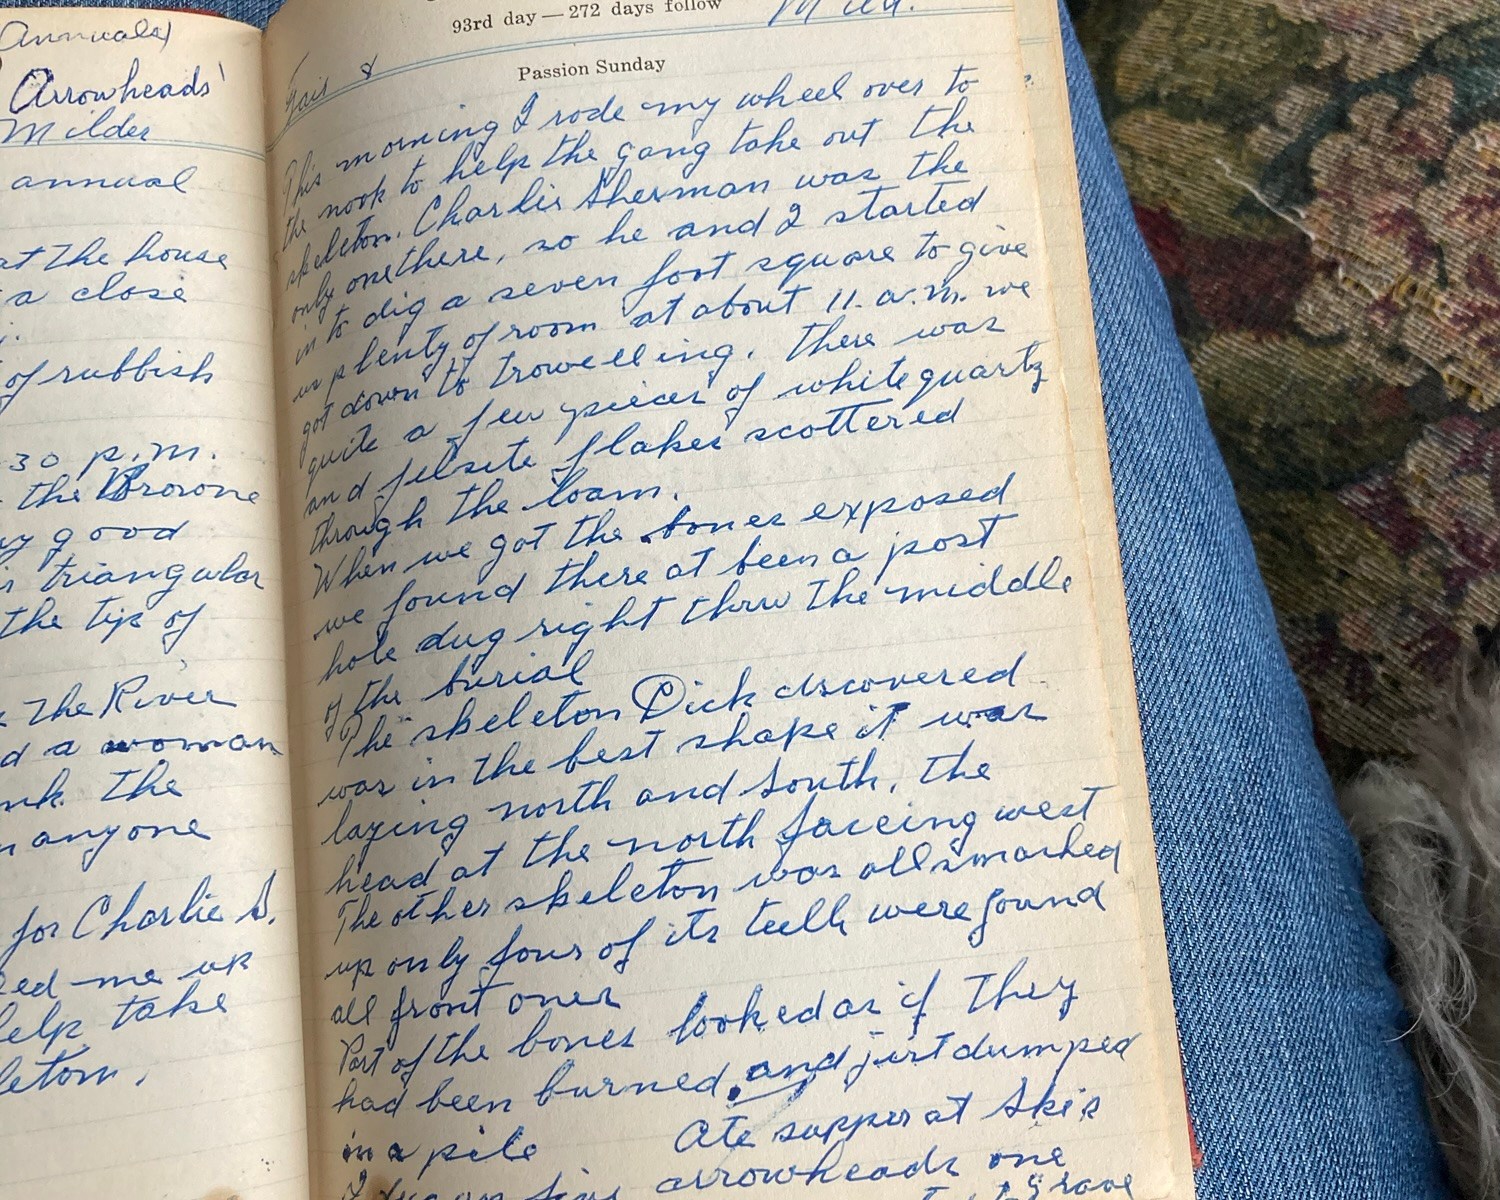 Annuals)
Arrowheads'
Milder
annual
at the house
a close
of rubbish
30 p.m.
the Browne
good
triangular
the tip of
The River
d a woman
nk the
n anyone
for Charlie S.
ed me up
help take
leton.
93rd day — 272 days follow
Mild.
Fair &
Passion Sunday
This morning I rode my wheel over to
the nook to help the gang take out the
skeleton. Charlie Sherman was the
only one there, so he and I started
in to dig a seven foot square to give
us plenty of room at about 11. a.m. we
got down to trowelling. There was
quite a few pieces of white quartz
and felsite flakes scottered
through the loam.
When we got the bones exposed
we found there at been a post
hole dug right thru the middle
of the burial
The skeleton Dick discovered
was in the best shape it was
laying north and south, the
head at the north faceing west
The other skeleton was all smashed
up only four of its teeth were found
all front ones
Part of the bones looked as if they
had been burned and just dumped
in a pile Ate supper at Skis
I arrowheads one
grave